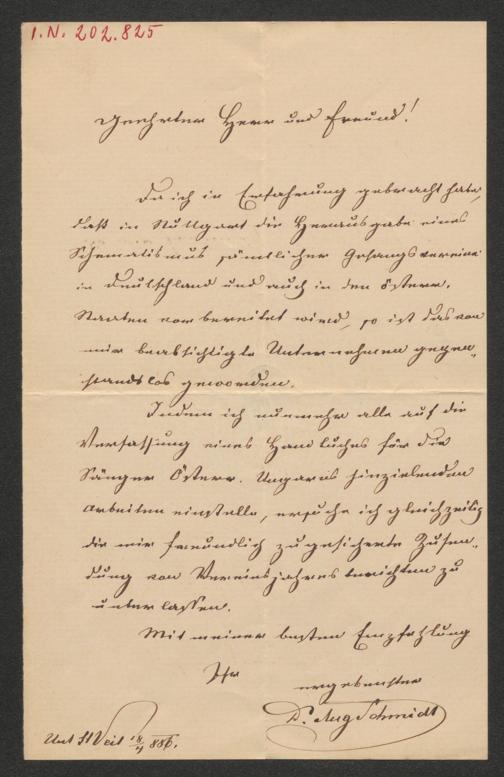 I.N. 202.825
Geehrter Herr und Freund!
Da ich in Erfahrung gebracht habe,
daß in Stuttgart die Herausgabe eines
Schematismus sämtlicher Gesangsvereine
in Deutschland und auch in den österr.
Staaten vorbereitet wird, so ist das von
mir beabsichtigte Unternehmen gegen„
standslos geworden.
Indem ich nunmehr alle auf die
Verfassung eines Handbuches für die
Sänger Österr. Ungarns hinzielenden
Arbeiten einstelle, ersuche ich gleichzeitig
die mir freundlich zugesicherte Zusen„
dung von Vereinsjahresberichten zu
unterlassen.
Mit meiner besten Empfehlung
Ihr
ergebenster
Dr. Aug Schmidt
Unt St Veit 886.